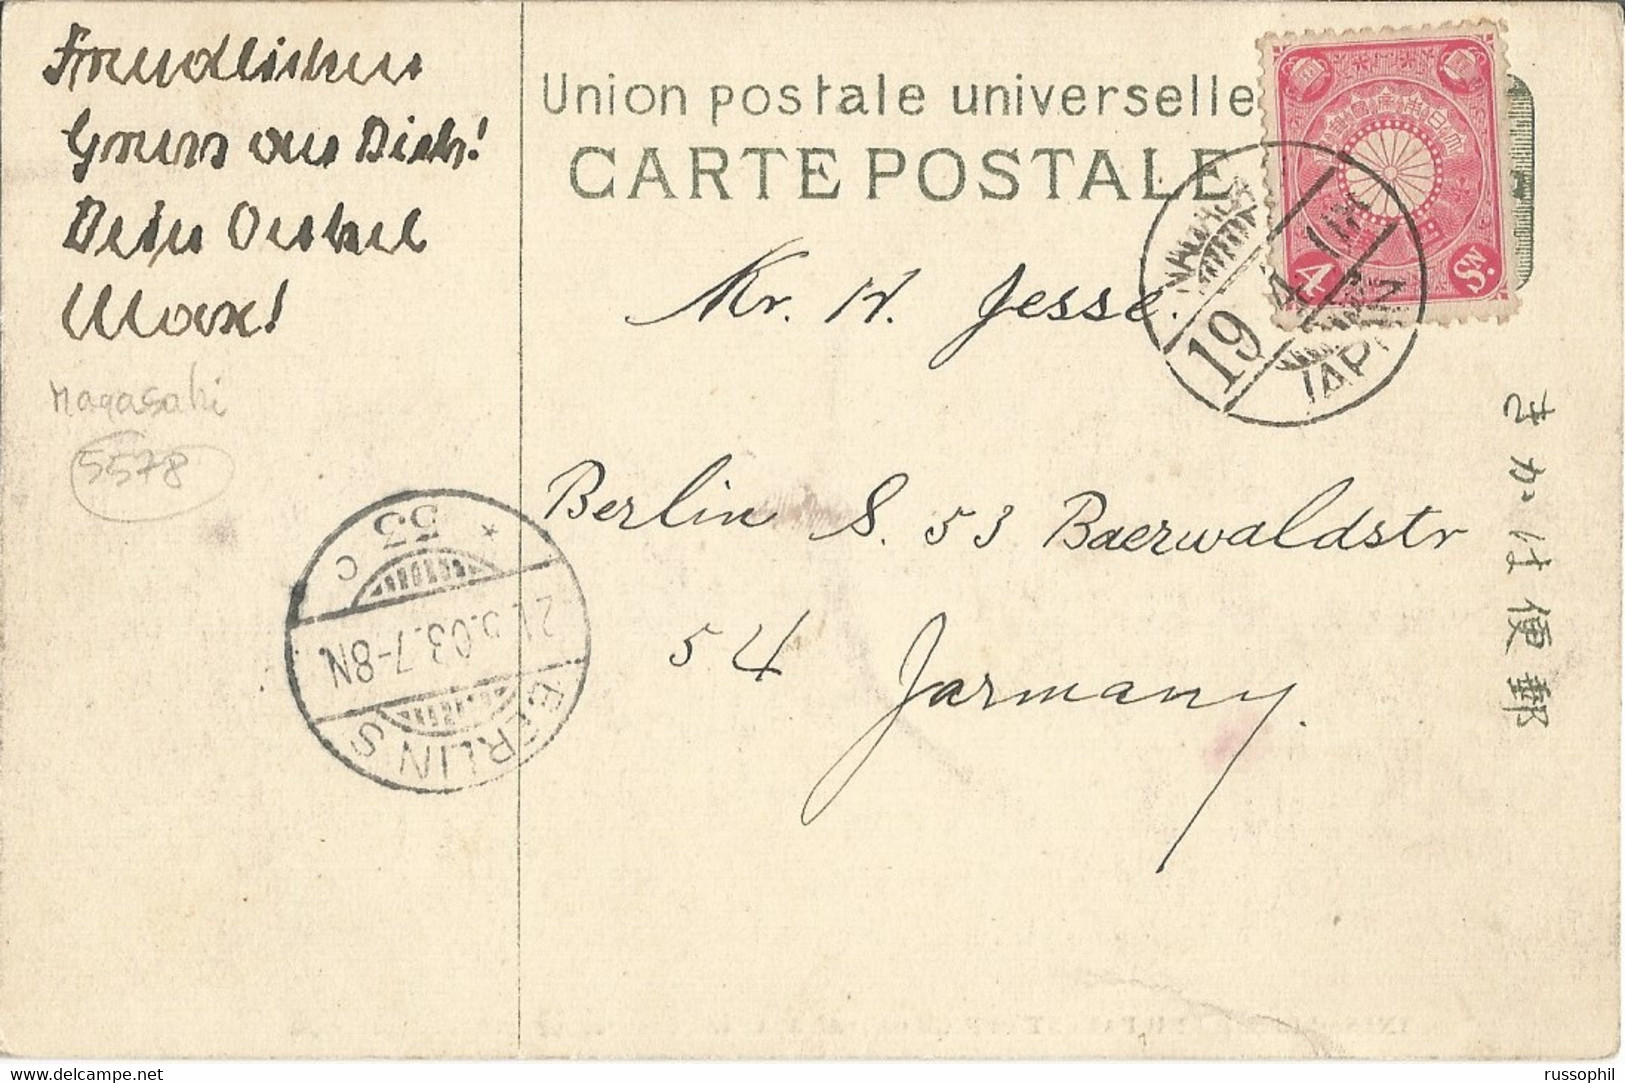 Freundlichen
Gruss aus Dich!
Dein Onkel
Max!
nagasaki
5578
Union postale universelle
CARTE POSTALE
4
Sn.
19
4
JAPAN
Mr. W. Jesse.
Berlin S. 53 Baerwaldstr
54 Jarmany.
きかは便郵
BERLIN S
21.5.03.7-8N
* 53 c
russophil
delcampe.net